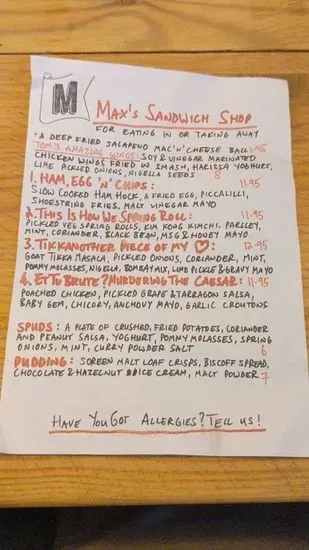 M
MAX'S SANDWICH SHOP
FOR EATING IN OR TAKING AWAY
* A DEEP FRIED JALAPENO MAC'N'CHEESE BALL
TOM'S AMAZING WINGS: SOY & VINEGAR MARINATED
CHICKEN WINGS FRIED IN SMASH, HARISSA YOGHURT,
LIME PICKLED ONIONS, NIGELLA SEEDS 8
1. HAM, EGG 'N' CHIPS: 11.95
SLOW COOKED HAM HOCK, A FRIED EGG, PICCALILLI,
SHOESTRING FRIES, MALT VINEGAR MAYO
2. THIS IS HOW WE SPRING ROLL: 11.95
PICKLED VEG SPRING ROLLS, KIM KONG KIMCHI, PARSLEY,
MINT, CORIANDER, BLACK BEAN, MSG & HONEY MAYO
3. TIKKANOTHER PIECE OF MY ♡: 12.95
GOAT TIKKA MASALA, PICKLED ONIONS, CORIANDER, MINT,
POMMY MOLASSES, NIGELLA, BOMBAY MIX, LIME PICKLE & GRAVY MAYO
4. ET TU BRUTE? MURDERING THE CAESAR: 11.95
POACHED CHICKEN, PICKLED GRAPE & TARRAGON SALSA,
BABY GEM, CHICORY, ANCHOVY MAYO, GARLIC CROUTONS
SPUDS: A PLATE OF CRUSHED, FRIED POTATOES, CORIANDER
AND PEANUT SALSA, YOGHURT, POMMY MOLASSES, SPRING
ONIONS, MINT, CURRY POWDER SALT 6
PUDDING: SOREEN MALT LOAF CRISPS, BISCOFF SPREAD,
CHOCOLATE & HAZELNUT ICE CREAM, MALT POWDER 7
HAVE YOU GOT ALLERGIES? TELL US!